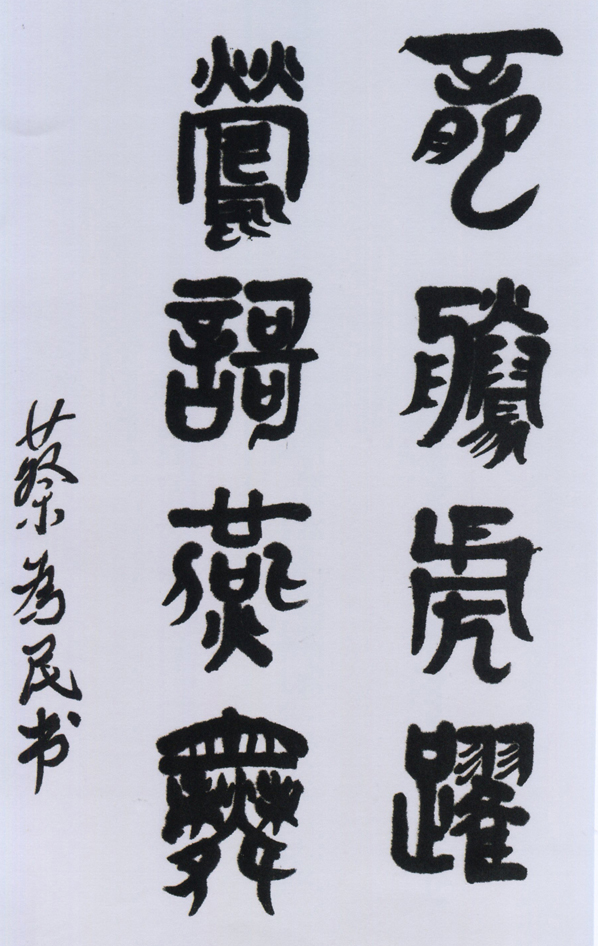 龍騰虎躍
鶯謌燕舞
蔡為民书